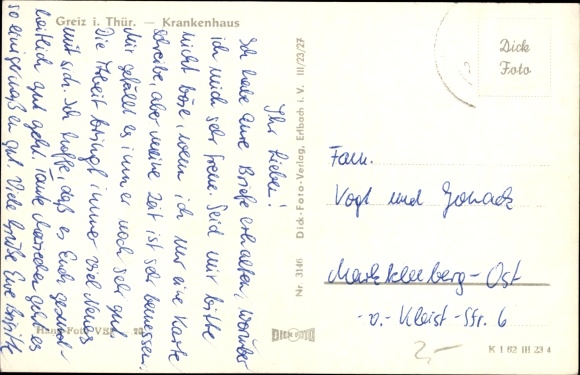 Greiz i. Thür. — Krankenhaus
Ihr Lieben!
Ich habe Eure Briefe erhalten, worüber
ich mich sehr freue. Seid mir bitte
nicht böse, wenn ich nur eine Karte
schreibe, aber meine Zeit ist sehr bemessen.
Mir gefällt es immer noch sehr gut.
Die Arbeit bringt immer viel Neues
mit sich. Ich hoffe, daß es Euch gesund-
heitlich gut geht. Tante geht es
so einigermaßen gut. Viele Grüße Eure Brigitte
Hans-Foto VSP
Nr. 3146 Dick-Foto-Verlag, Erlbach i. V. III/23/27
DICK FOTO
Dick
Foto
Fam.
Vogt und
Markkleeberg-Ost
-v.- Kleist-Str. 6
2,-
K 1 62 III 23 4